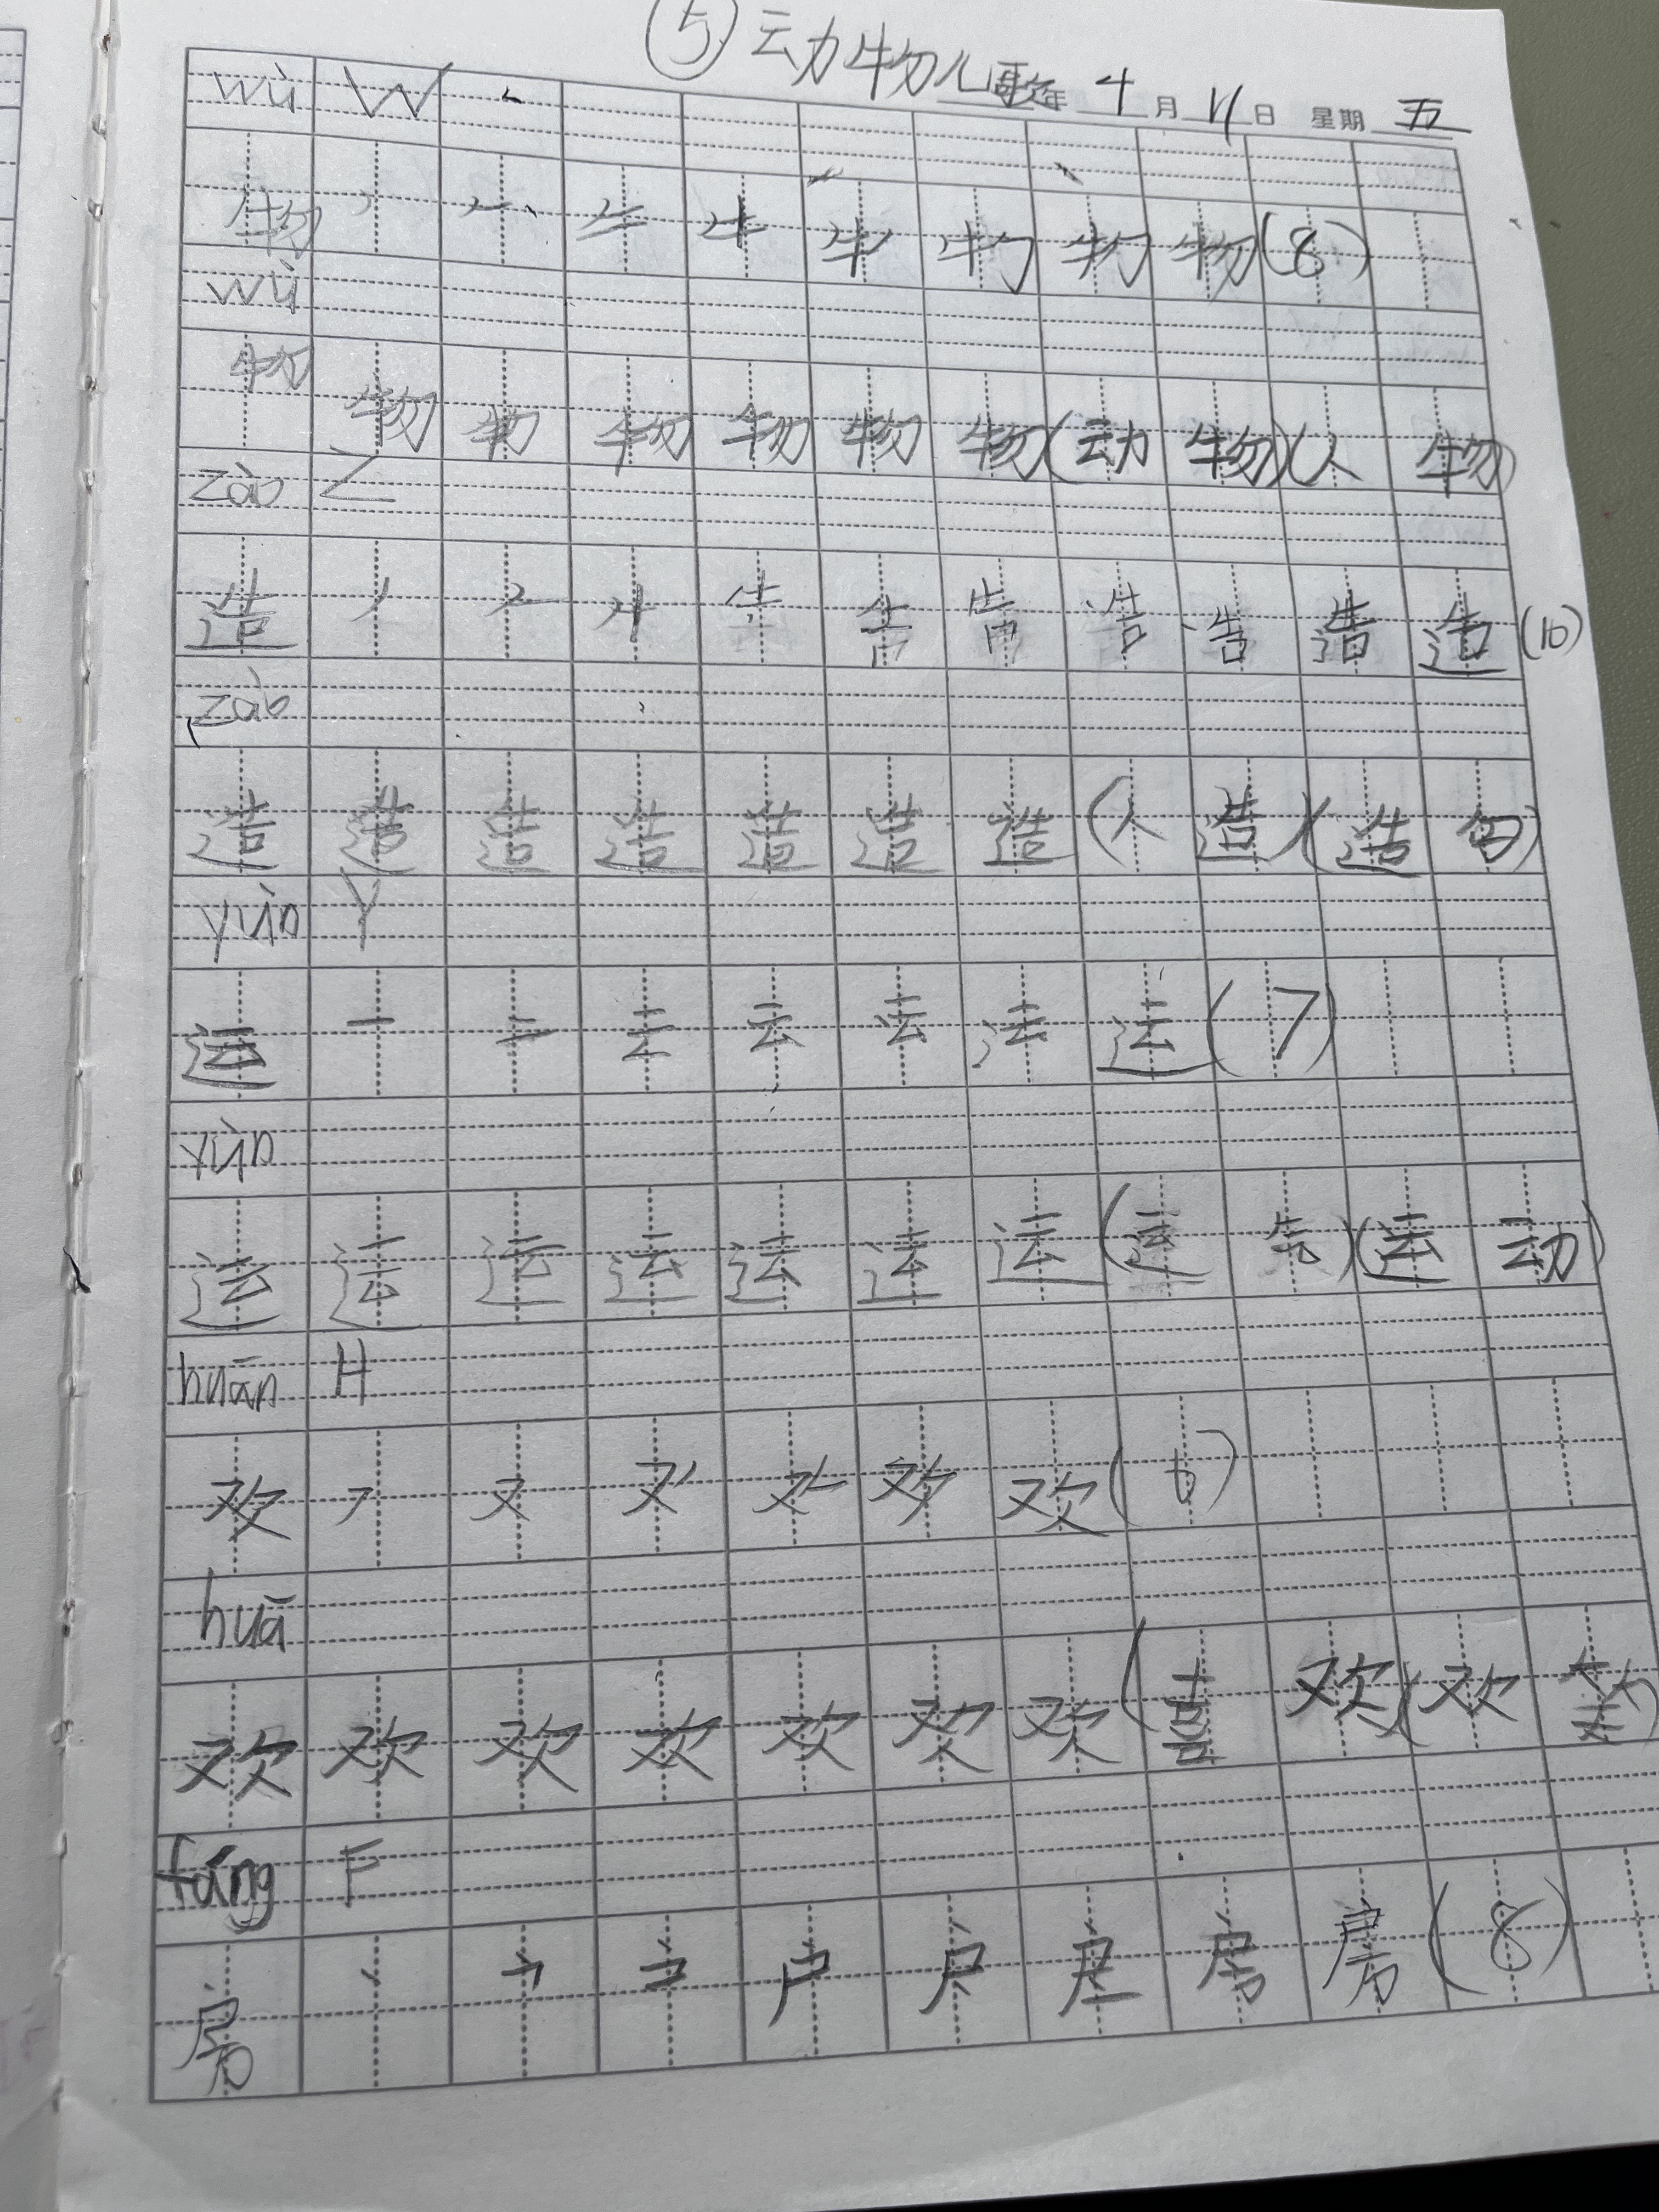 ⑤动物儿歌 年 4月11日 星期五
wù W
物 丿 𠂉 牛 牜 物 物(8)
wù
物 物 物 物 物 物 物(动物)(人物)
zào Z
造 丿 𠂉 牛 告 造(10)
zào
造 造 造 造 造 造 造(人造)(造句)
yùn Y
运 一 二 云 云 运(7)
yùn
运 运 运 运 运 运 运(运气)(运动)
huān H
欢 フ 又 欢(6)
huā
欢 欢 欢 欢 欢 欢 欢(喜欢)(欢笑)
fáng F
房 丶 户 房 房(8)